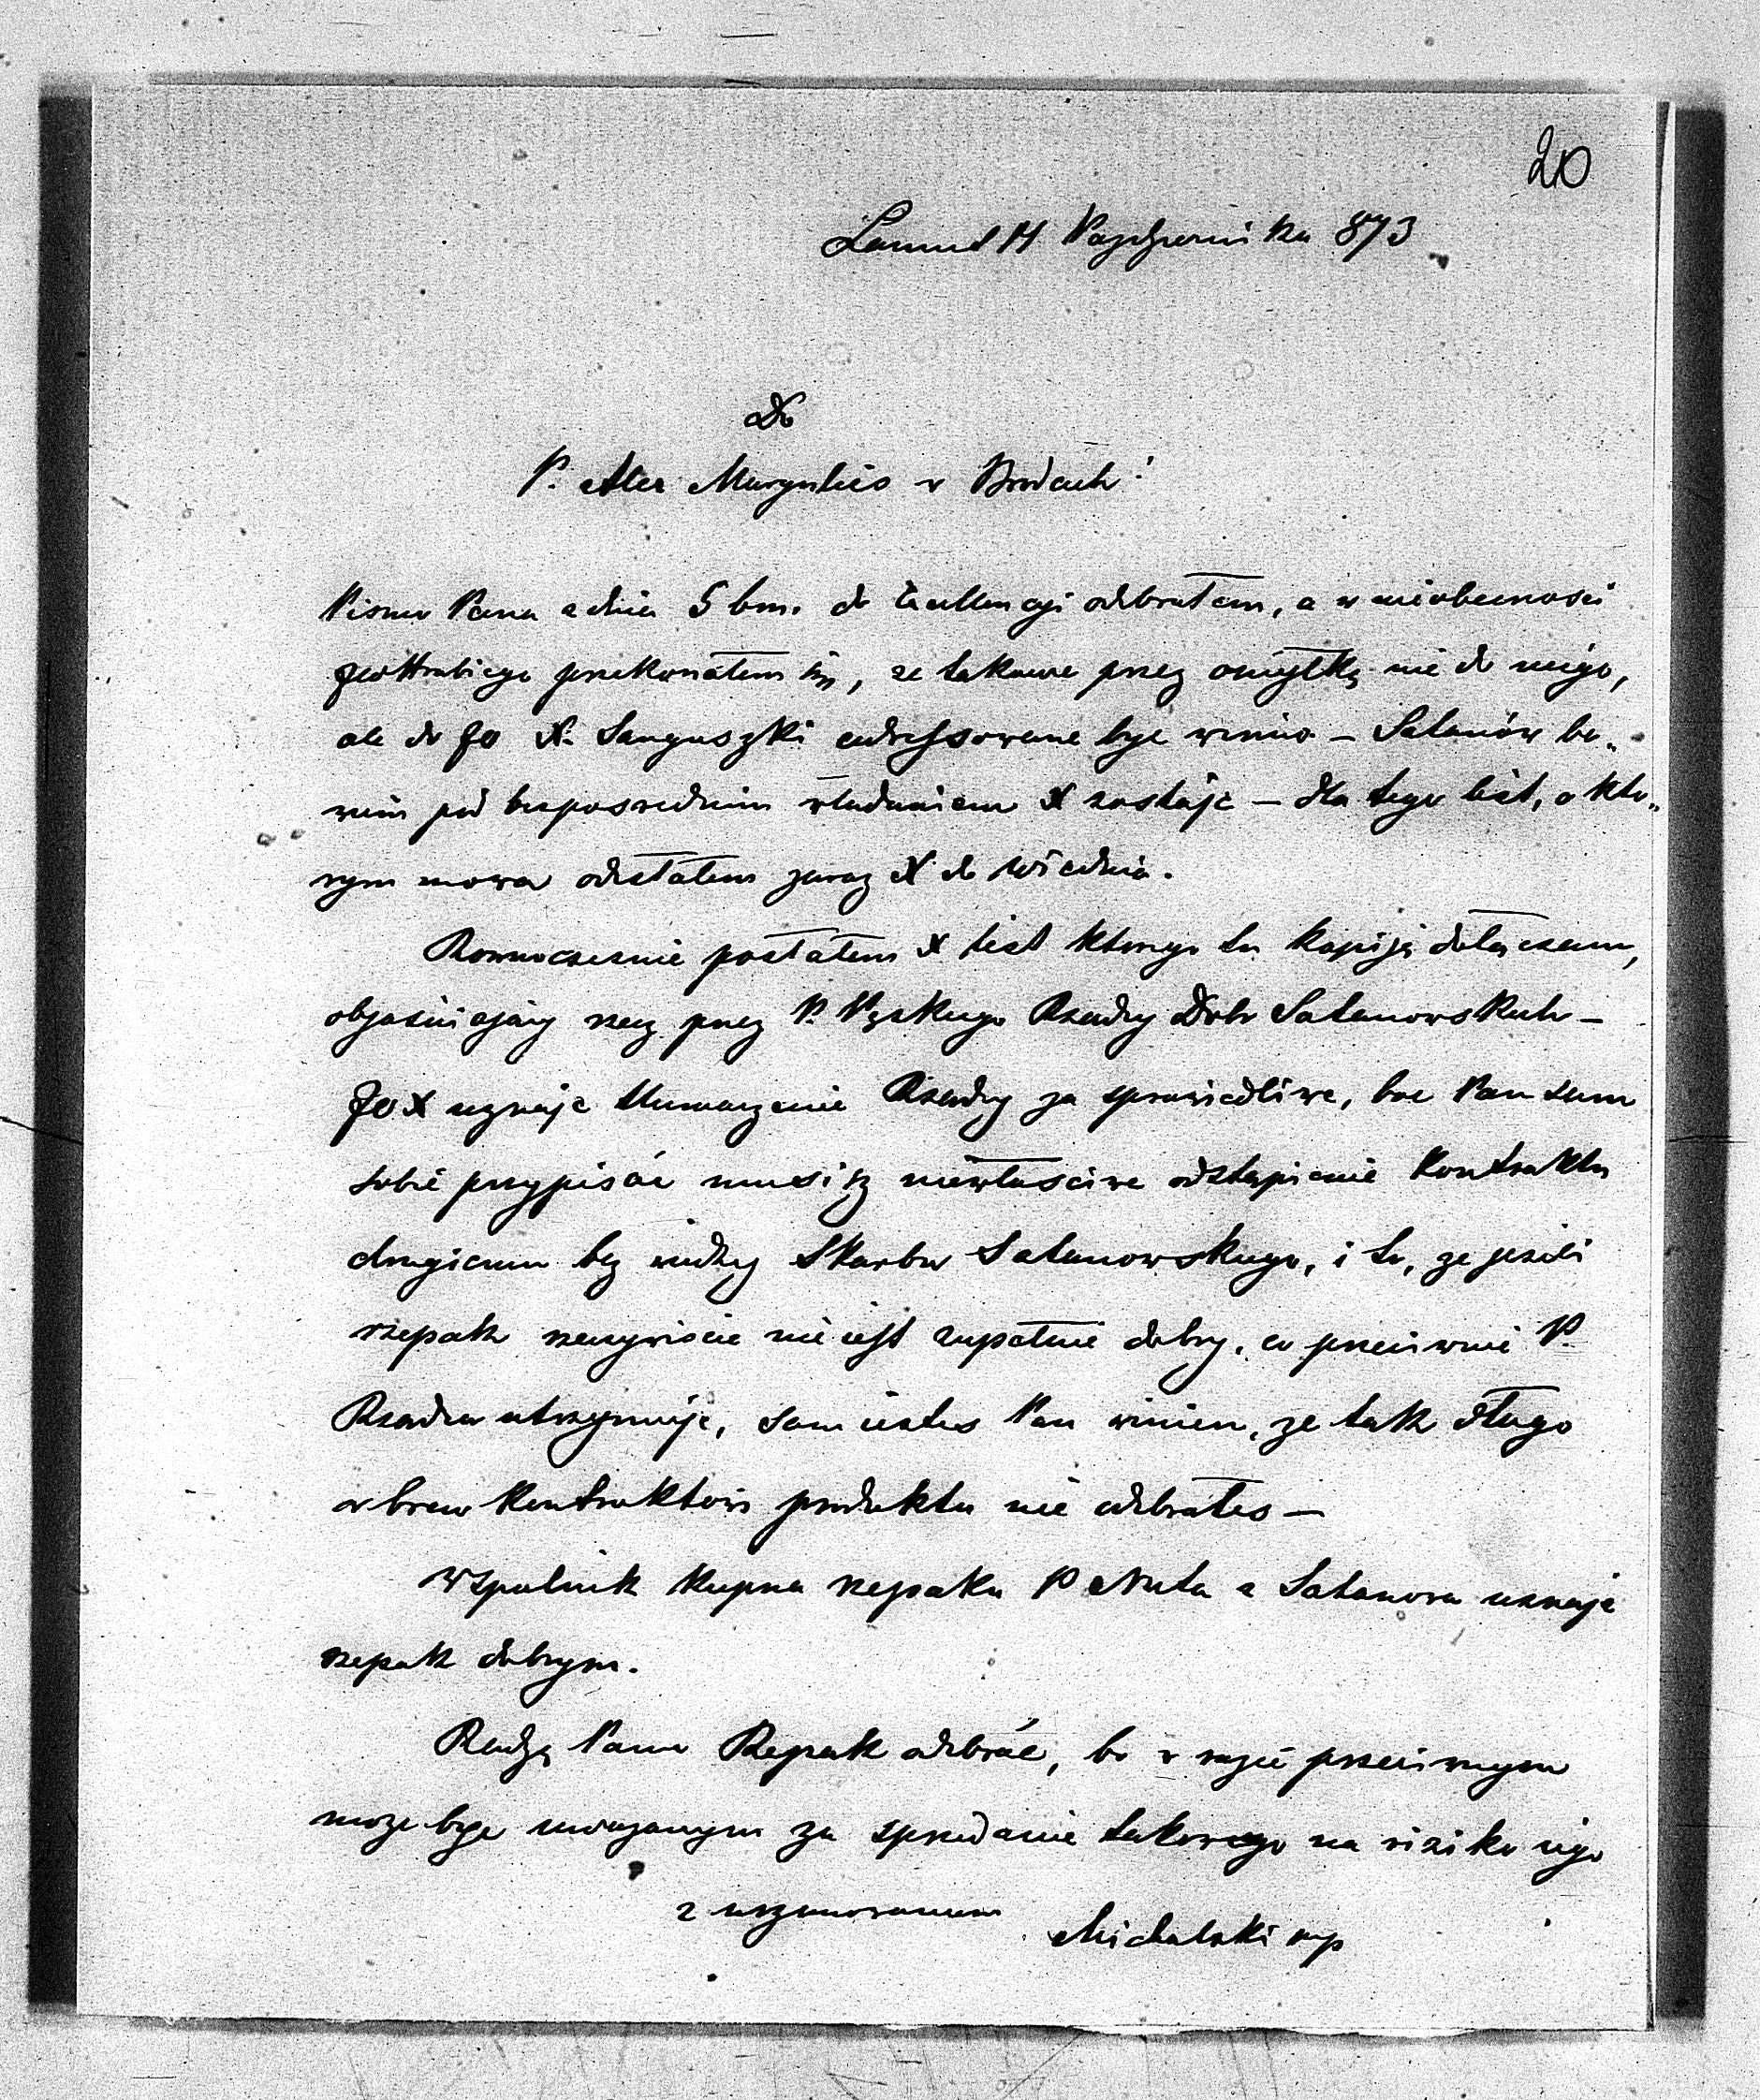 20
Lancut 14 Pazdziernika 873
Do
P. Alex Margulies w Brodach!
Pismo Pana z dnia 5 bm. do Exellencyi odebrałem, a w nieobecnosci
JW Hrabiego przekonałem się, ze takowe przez omyłkę nie do niego,
ale do JO X. Sanguszki adressowane byc winno – Satanów bo„
wiem pod bezposrednim władaniem X zostaje – dla tego list, o kto„
rym mowa odesłałem zaraz X do Wiednia.
Rownoczesnie posłałem X list ktorego tu kopiją dołączam,
objaśniający rzecz przez P. Rzadcy Dobr Satanowskich –
JO X uznaje tłumaczenie Rzadcy za sprawiedliwe, boc Pan sam
sobie przypisác musisz niewłasciwe odstapienie Kontraktu
drugiemu bez wiedzy Skarbu Satanowskiego, i to, ze jezeli
rzepak rzeczywiscie nie iest zupełnie dobry, co przeciwnie P.
Rzadca utrzymuje, sam iestes Pan winien, ze tak długo
wbrew Kontraktowi produktu nie odebrałes –
Wspolnik kupna rzepaku P Nuta z Satanowa uznaje
rzepak dobrym.
Radzę Panu Rzepak odebrác, bo w razie przeciwnym
moze byc uwazanym za sprzedanie takowego na riziko iego
z uszanowaniem
Michalski mp